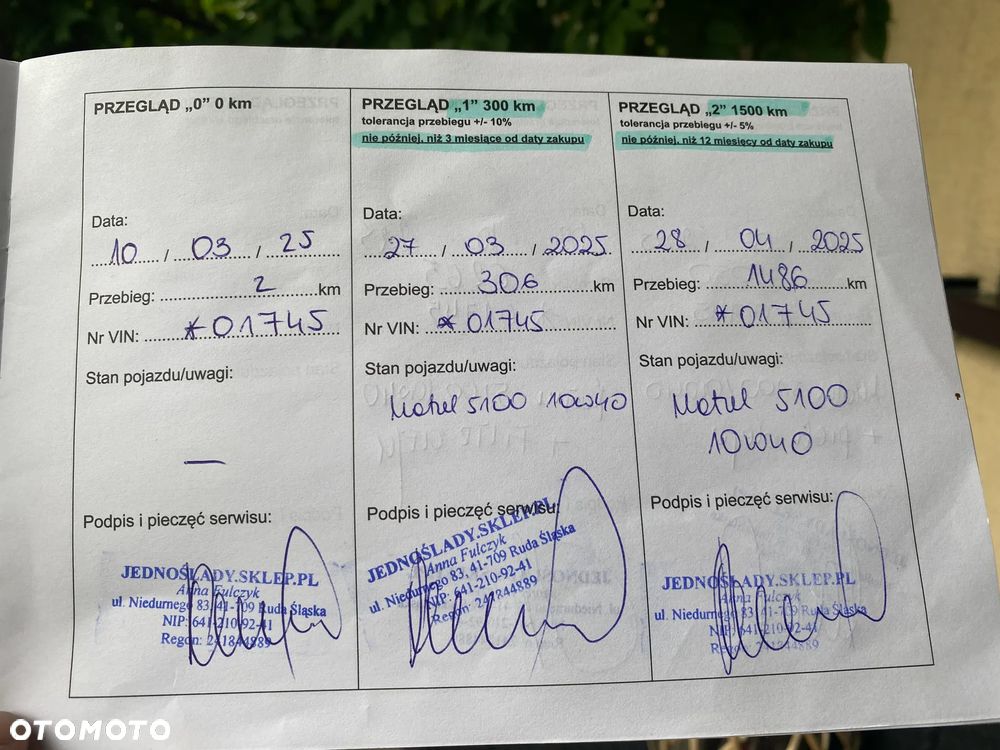 PRZEGLĄD „0” 0 km
Data:
10 / 03 / 25
Przebieg: 2 km
Nr VIN: *01745
Stan pojazdu/uwagi:
—
Podpis i pieczęć serwisu:
JEDNOŚLADY.SKLEP.PL
Anna Fulczyk
ul. Niedurnego 83, 41-709 Ruda Śląska
NIP: 641-210-92-41
Regon: 241844889
PRZEGLĄD „1” 300 km
tolerancja przebiegu +/- 10%
nie później, niż 3 miesiące od daty zakupu
Data:
27 / 03 / 2025
Przebieg: 306 km
Nr VIN: *01745
Stan pojazdu/uwagi:
Motul 5100 10W40
Podpis i pieczęć serwisu:
JEDNOŚLADY.SKLEP.PL
Anna Fulczyk
ul. Niedurnego 83, 41-709 Ruda Śląska
NIP: 641-210-92-41
Regon: 241844889
PRZEGLĄD „2” 1500 km
tolerancja przebiegu +/- 5%
nie później, niż 12 miesięcy od daty zakupu
Data:
28 / 04 / 2025
Przebieg: 1486 km
Nr VIN: *01745
Stan pojazdu/uwagi:
Motul 5100
10W40
Podpis i pieczęć serwisu:
JEDNOŚLADY.SKLEP.PL
Anna Fulczyk
ul. Niedurnego 83, 41-709 Ruda Śląska
NIP: 641-210-92-41
Regon: 241844889
OTOMOTO